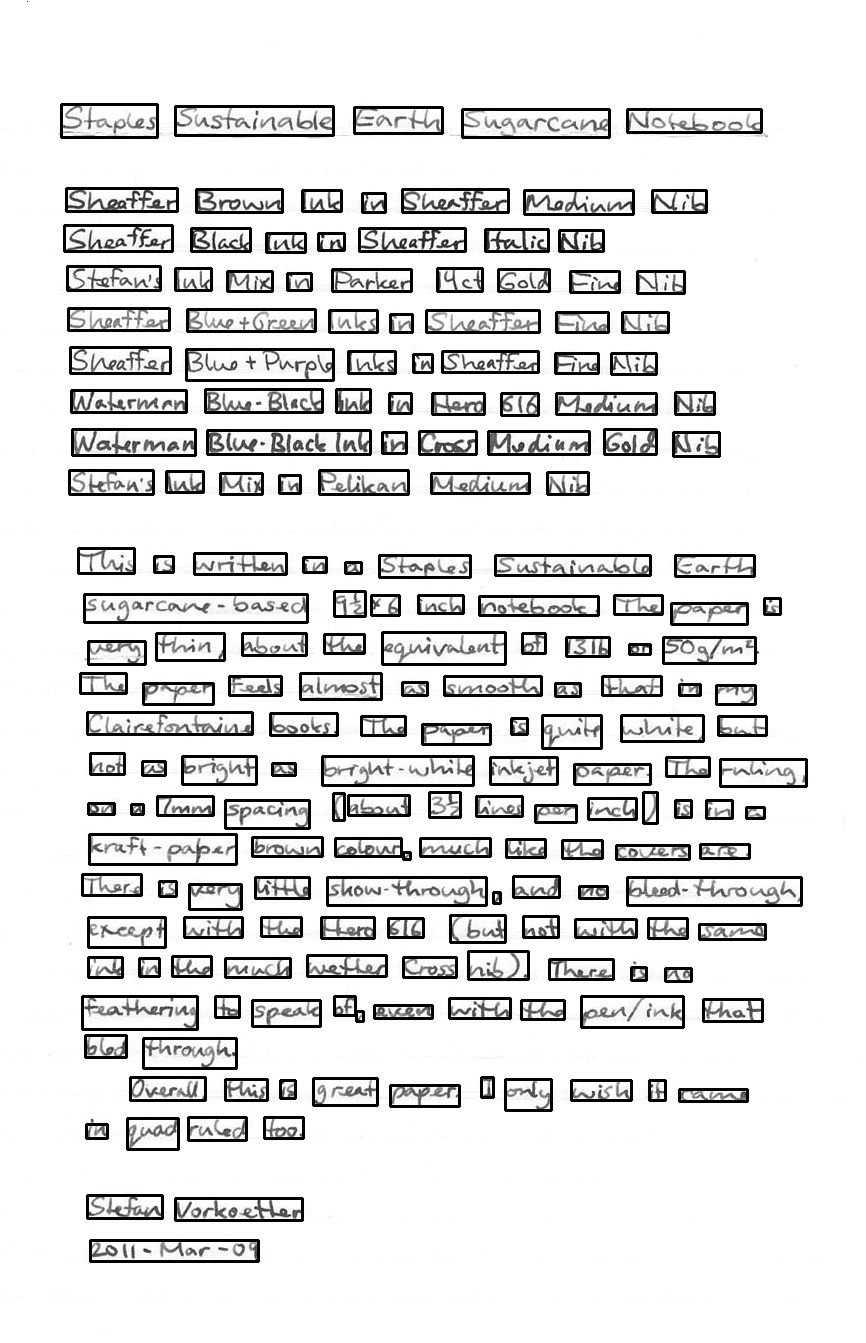 Staples Sustainable Earth Sugarcane Notebook
Sheaffer Brown Ink in Sheaffer Medium Nib
Sheaffer Black Ink in Sheaffer Italic Nib
Stefan's Ink Mix in Parker 14ct Gold Fine Nib
Sheaffer Blue+Green Inks in Sheaffer Fine Nib
Sheaffer Blue + Purple Inks in Sheaffer Fine Nib
Waterman Blue-Black Ink in Hero 616 Medium Nib
Waterman Blue-Black Ink in Cross Medium Gold Nib
Stefan's Ink Mix in Pelikan Medium Nib
This is written in a Staples Sustainable Earth
sugarcane-based 9½×6 inch notebook. The paper is
very thin, about the equivalent of 13lb or 50g/m².
The paper feels almost as smooth as that in my
Clairefontaine books. The paper is quite white, but
not as bright as bright-white inkjet paper. The ruling,
on a 7mm spacing (about 3½ lines per inch) is in a
kraft-paper brown colour, much like the covers are.
There is very little show-through, and no bleed-through,
except with the Hero 616 (but not with the same
ink in the much wetter Cross nib). There is no
feathering to speak of, even with the pen/ink that
bled through.
Overall this is great paper. I only wish it came
in quad ruled too.
Stefan Vorkoetter
2011-Mar-09